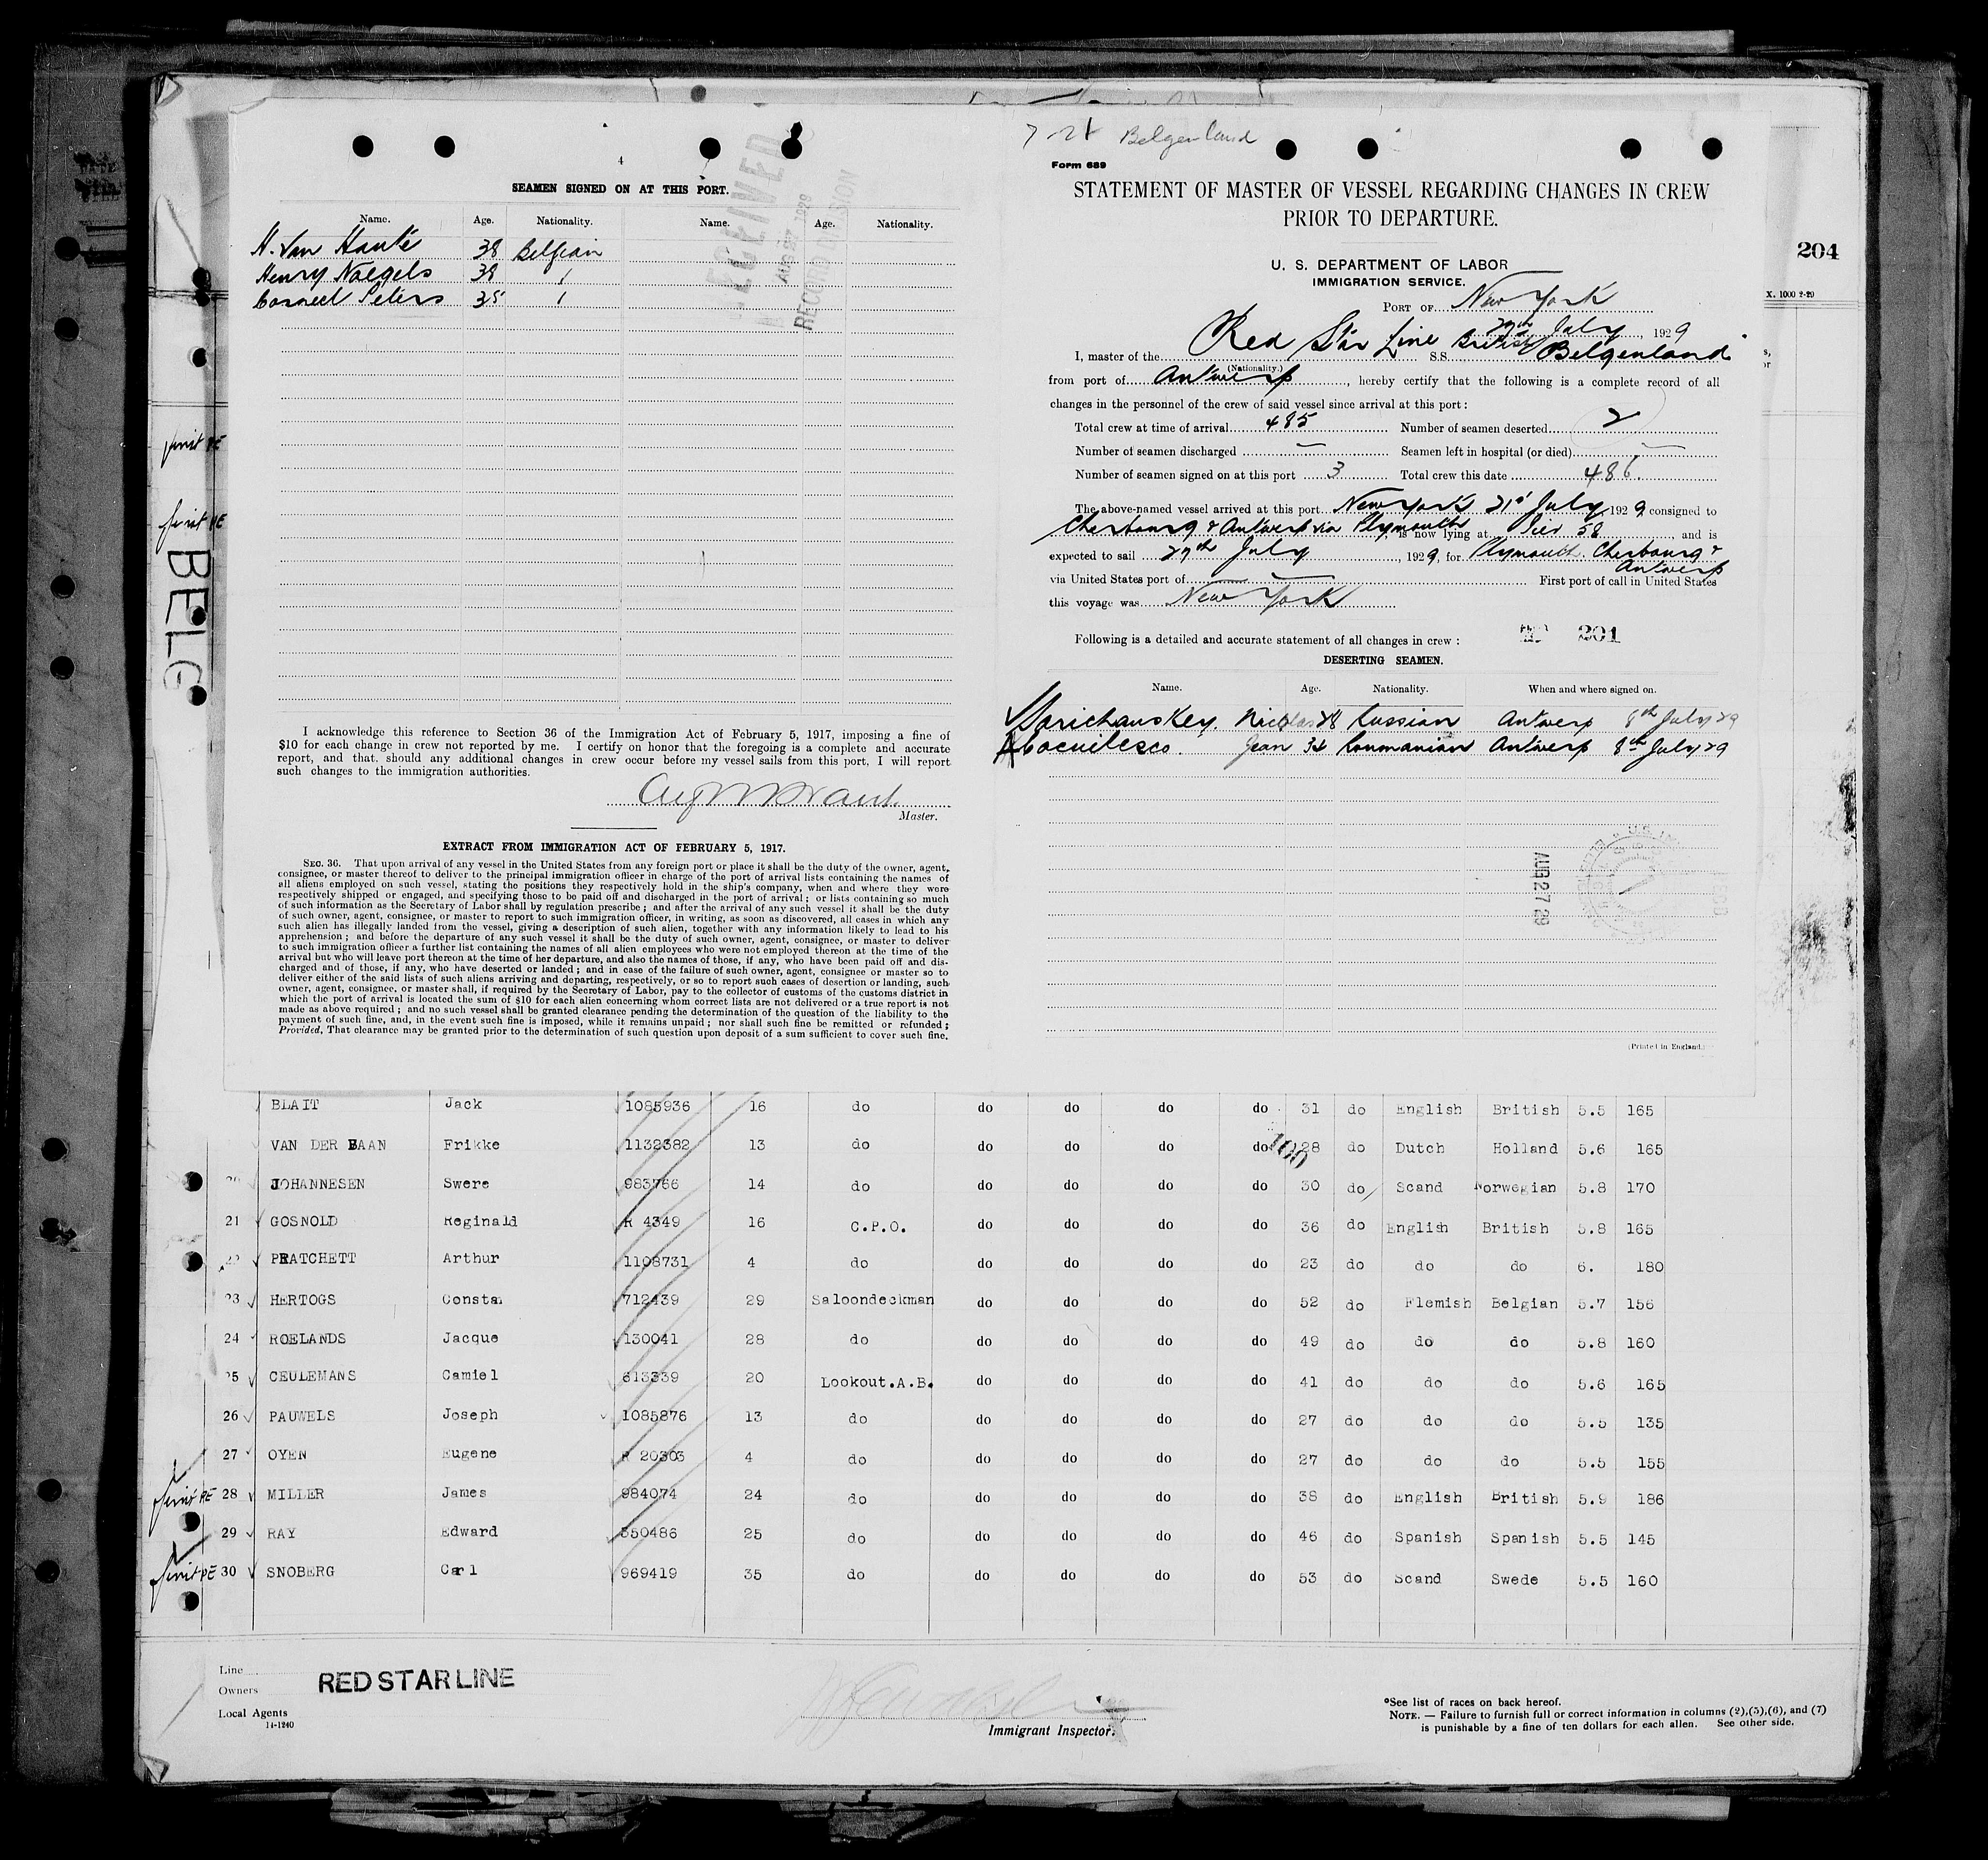 4
SEAMEN SIGNED ON AT THIS PORT.
Name. Age. Nationality. Name. Age. Nationality.
H. Van Haute 38 Belgian
Henry Naegels 38 "
Corneel Peters 35 "
RECEIVED
AUG 27 1929
RECORD DIVISION
I acknowledge this reference to Section 36 of the Immigration Act of February 5, 1917, imposing a fine of
$10 for each change in crew not reported by me. I certify on honor that the foregoing is a complete and accurate
report, and that, should any additional changes in crew occur before my vessel sails from this port, I will report
such changes to the immigration authorities.
Master.
EXTRACT FROM IMMIGRATION ACT OF FEBRUARY 5, 1917.
SEC. 36. That upon arrival of any vessel in the United States from any foreign port or place it shall be the duty of the owner, agent,
consignee, or master thereof to deliver to the principal immigration officer in charge of the port of arrival lists containing the names of
all aliens employed on such vessel, stating the positions they respectively hold in the ship's company, when and where they were
respectively shipped or engaged, and specifying those to be paid off and discharged in the port of arrival; or lists containing so much
of such information as the Secretary of Labor shall by regulation prescribe; and after the arrival of any such vessel it shall be the duty
of such owner, agent, consignee, or master to report to such immigration officer, in writing, as soon as discovered, all cases in which any
such alien has illegally landed from the vessel, giving a description of such alien, together with any information likely to lead to his
apprehension; and before the departure of any such vessel it shall be the duty of such owner, agent, consignee, or master to deliver
to such immigration officer a further list containing the names of all alien employees who were not employed thereon at the time of the
arrival but who will leave port thereon at the time of her departure, and also the names of those, if any, who have been paid off and dis-
charged and of those, if any, who have deserted or landed; and in case of the failure of such owner, agent, consignee or master so to
deliver either of the said lists of such aliens arriving and departing, respectively, or so to report such cases of desertion or landing, such
owner, agent, consignee, or master shall, if required by the Secretary of Labor, pay to the collector of customs of the customs district in
which the port of arrival is located the sum of $10 for each alien concerning whom correct lists are not delivered or a true report is not
made as above required; and no such vessel shall be granted clearance pending the determination of the question of the liability to the
payment of such fine, and, in the event such fine is imposed, while it remains unpaid; nor shall such fine be remitted or refunded;
Provided, That clearance may be granted prior to the determination of such question upon deposit of a sum sufficient to cover such fine.
7-21 Belgenland
Form 689
STATEMENT OF MASTER OF VESSEL REGARDING CHANGES IN CREW
PRIOR TO DEPARTURE.
U. S. DEPARTMENT OF LABOR
IMMIGRATION SERVICE.
PORT OF New York
27th July, 1929
I, master of the Red Star Line British S.S. Belgenland
(Nationality.)
from port of Antwerp, hereby certify that the following is a complete record of all
changes in the personnel of the crew of said vessel since arrival at this port:
Total crew at time of arrival 485 Number of seamen deserted 2
Number of seamen discharged — Seamen left in hospital (or died) —
Number of seamen signed on at this port 3 Total crew this date 486.
The above-named vessel arrived at this port New York 21st July, 1929, consigned to
Cherbourg & Antwerp via Plymouth is now lying at Pier 58, and is
expected to sail 27th July, 1929, for Plymouth. Cherbourg &
Antwerp
via United States port of — — First port of call in United States
this voyage was New York
Following is a detailed and accurate statement of all changes in crew: 201
DESERTING SEAMEN.
Name. Age. Nationality. When and where signed on.
Nicolas 28 Russian Antwerp 8th July 29
Jean 34 Roumanian Antwerp 8th July 29
AUG 27 29
(Printed in England.)
204
X. 1000 2-29
BELG
BLAIT Jack 1085936 16 do do do do do 31 do English British 5.5 165
VAN DER BAAN Frikke 1132382 13 do do do do do 28 do Dutch Holland 5.6 165
100
20 JOHANNESEN Swere 983766 14 do do do do do 30 do Scand Norwegian 5.8 170
21 GOSNOLD Reginald R 4349 16 C.P.O. do do do do 36 do English British 5.8 165
22 PRATCHETT Arthur 1108731 4 do do do do do 23 do do do 6. 180
23 HERTOGS Constan 712439 29 Saloondeckman do do do do 52 do Flemish Belgian 5.7 156
24 ROELANDS Jacque 130041 28 do do do do do 49 do do do 5.8 160
25 CEULEMANS Camiel 613339 20 Lookout.A.B. do do do do 41 do do do 5.6 165
26 PAUWELS Joseph 1085876 13 do do do do do 27 do do do 5.5 135
27 OYEN Eugene R 20303 4 do do do do do 27 do do do 5.5 155
28 MILLER James 984074 24 do do do do do 38 do English British 5.9 186
29 RAY Edward 550486 25 do do do do do 46 do Spanish Spanish 5.5 145
30 SNOBERG Carl 969419 35 do do do do do 53 do Scand Swede 5.5 160
Line
Owners RED STAR LINE
Local Agents
14-1240
Immigrant Inspector.
*See list of races on back hereof.
NOTE. — Failure to furnish full or correct information in columns (2),(5),(6), and (7)
is punishable by a fine of ten dollars for each alien. See other side.